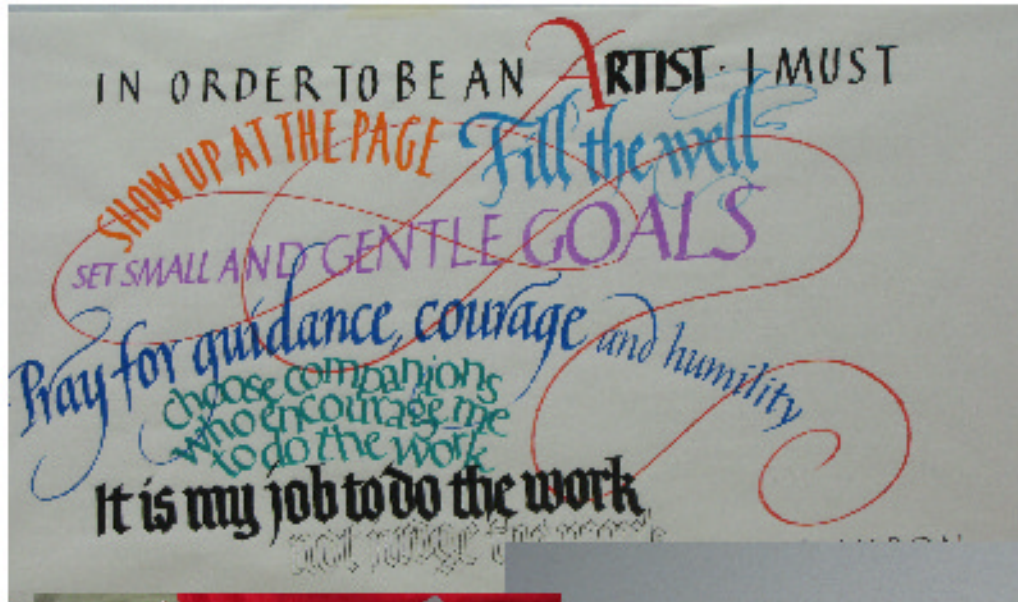 IN ORDER TO BE AN ARTIST · I MUST
SHOW UP AT THE PAGE
Fill the well
SET SMALL AND GENTLE GOALS
Pray for guidance, courage and humility
choose companions
who encourage me
to do the work
It is my job to do the work
not judge the work